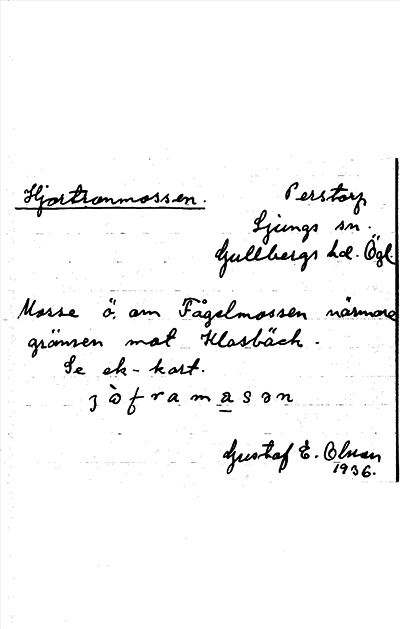 Hjortronmossen. Perstorp
Ljungs sn.
Gullbergs hd. Ögl.
Mosse ö. om Fågelmossen närmare
gränsen mot Klasbäck.
Se ek-kart.
Gustaf E. Olsson
1936.